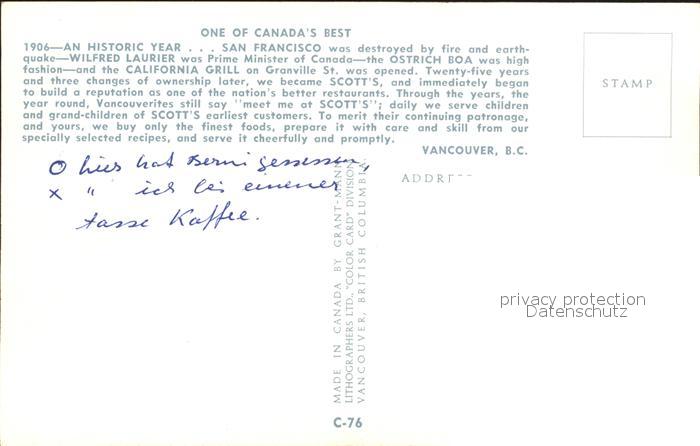 ONE OF CANADA'S BEST
1906—AN HISTORIC YEAR . . . SAN FRANCISCO was destroyed by fire and earth-
quake—WILFRED LAURIER was Prime Minister of Canada—the OSTRICH BOA was high
fashion—and the CALIFORNIA GRILL on Granville St. was opened. Twenty-five years
and three changes of ownership later, we became SCOTT'S, and immediately began
to build a reputation as one of the nation's better restaurants. Through the years, the
year round, Vancouverites still say "meet me at SCOTT'S"; daily we serve children
and grand-children of SCOTT'S earliest customers. To merit their continuing patronage,
and yours, we buy only the finest foods, prepare it with care and skill from our
specially selected recipes, and serve it cheerfully and promptly.
VANCOUVER, B.C.
O hier hat Berni gesessen,
x " ich bei einer
tasse Kaffee.
MADE IN CANADA BY GRANT-MANN
LITHOGRAPHERS LTD., "COLOR CARD" DIVISION
VANCOUVER, BRITISH COLUMBIA
C-76
STAMP
ADDRE
privacy protection
Datenschutz